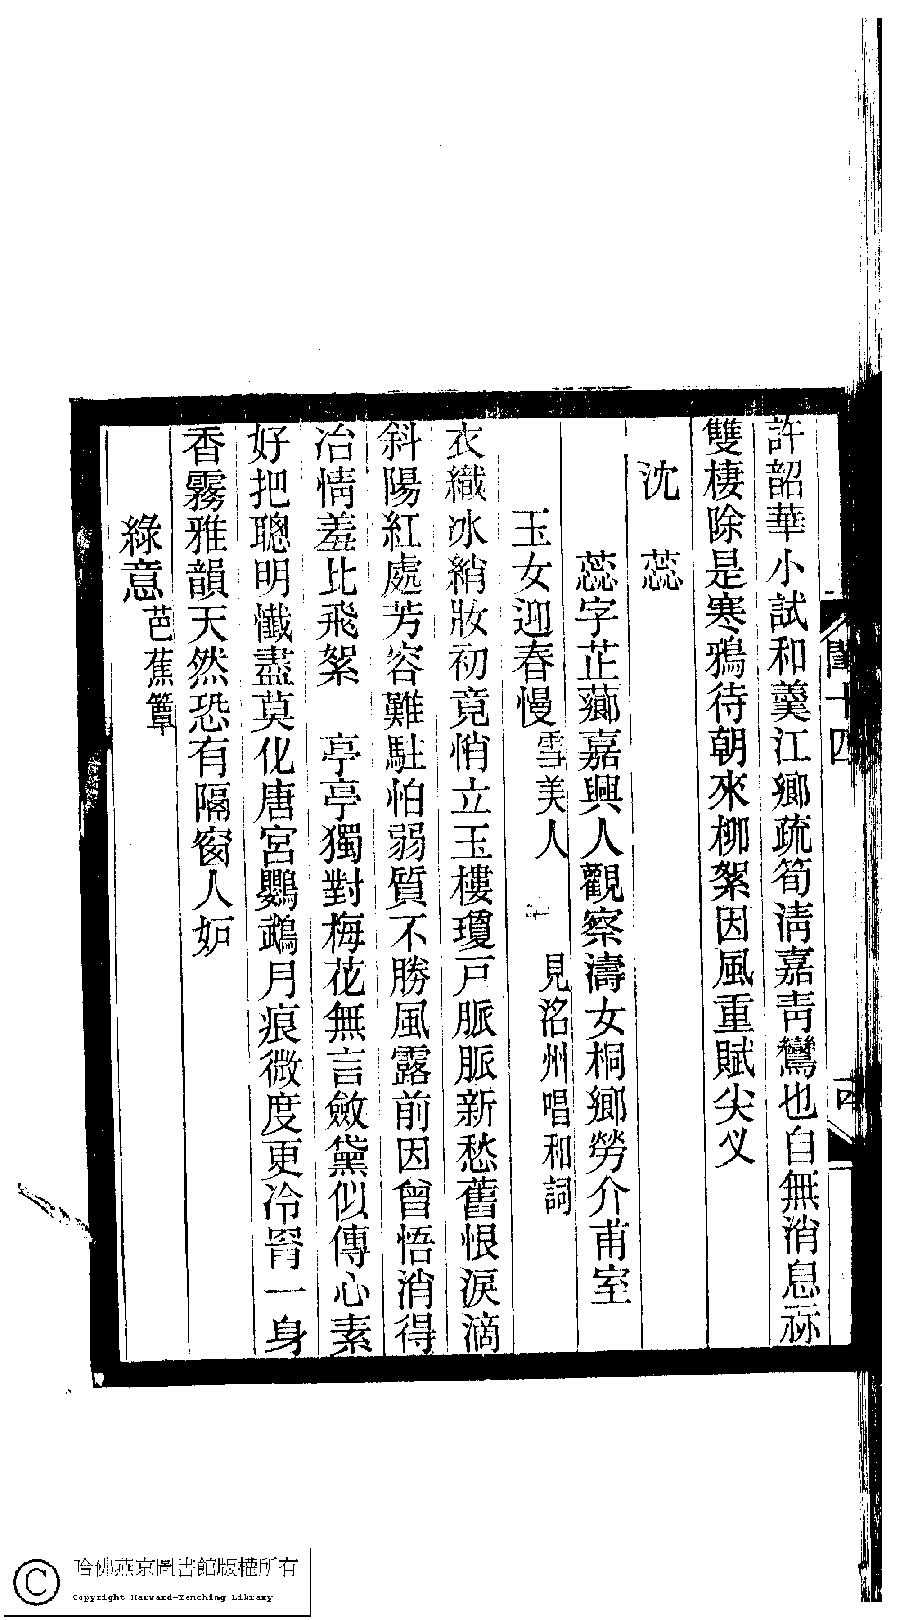 閨十四
四
許韶華小試和羹江鄉疏筍清嘉靑鸞也自無消息祢
雙棲除是寒鴉待朝來柳絮因風重賦尖叉
沈蕊
蕊字芷薌嘉興人觀察濤女桐鄉勞介甫室
玉女迎春慢雪美人 見洺州唱和詞
衣織冰綃妝初竟悄立玉樓瓊戸脈脈新愁舊恨淚滴
斜陽紅處芳容難駐怕弱質不勝風露前因曾悟消得
冶情羞比飛絮 亭亭獨對梅花無言斂黛似傳心素
好把聰明懺盡莫化唐宮鸚鵡月痕微度更冷罥一身
香霧雅韻天然恐有隔窗人妒
綠意芭蕉簟
哈佛燕京圖書館版權所有
Copyright Harvard-Yenching Library